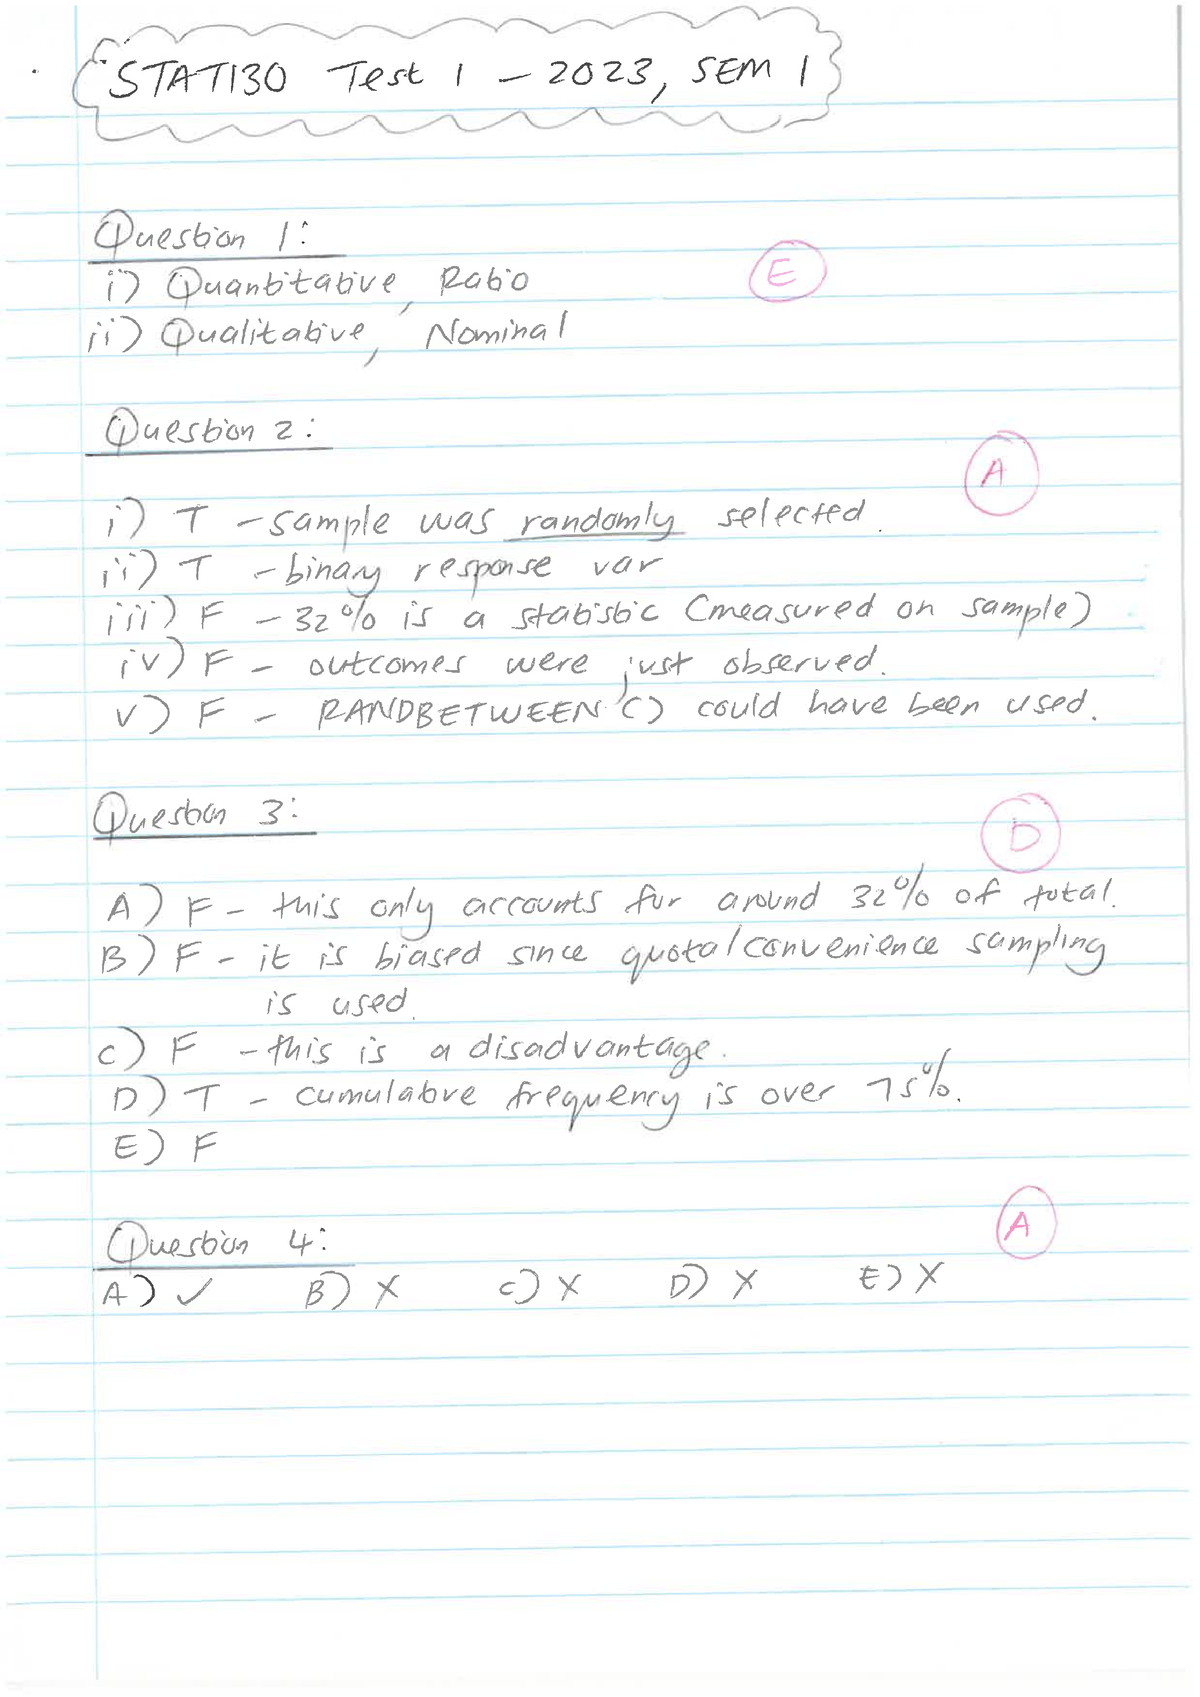 STAT130 Test 1 - 2023, SEM 1
Question 1:
i) Quantitative, Ratio
E
ii) Qualitative, Nominal
Question 2:
A
i) T - sample was randomly selected.
ii) T - binary response var
iii) F - 32% is a statistic (measured on sample)
iv) F - outcomes were just observed.
v) F - RANDBETWEEN() could have been used.
Question 3:
D
A) F - this only accounts for around 32% of total.
B) F - it is biased since quota/convenience sampling
is used.
C) F - this is a disadvantage.
D) T - cumulative frequency is over 75%.
E) F
Question 4:
A
A) ✓ B) X C) X D) X E) X